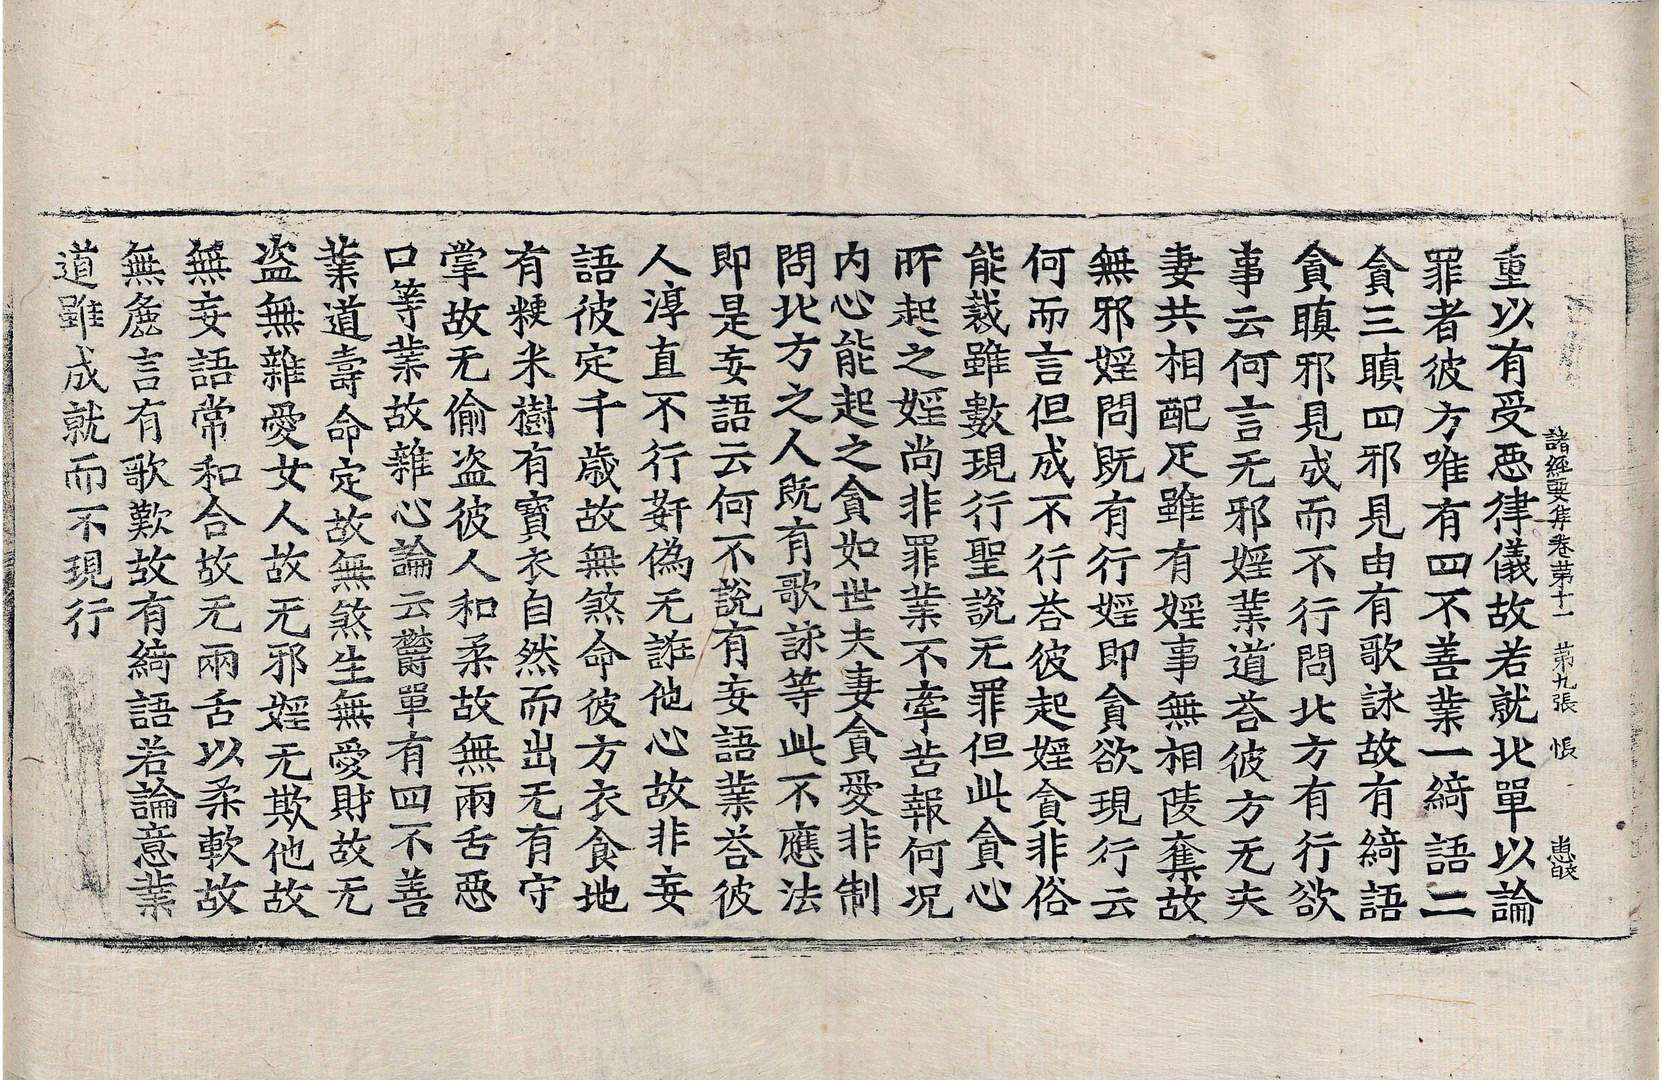 諸經要集卷苐十一　苐九張　悵
重以有受惡律儀故若就北單以論
罪者彼方唯有四不善業一綺語二
貪三瞋四邪見由有歌詠故有綺語
貪瞋邪見成而不行問北方有行欲
事云何言无邪婬業道荅彼方无夫
妻共相配疋雖有婬事無相陵奪故
無邪婬問既有行婬即貪欲現行云
何而言但成不行荅彼起婬貪非俗
能裁雖數現行聖說无罪但此貪心
所起之婬尚非罪業不牽苦報何况
内心能起之貪如世夫妻貪愛非制
問北方之人既有歌詠等此不應法
即是妄語云何不說有妄語業荅彼
人淳直不行姧偽无誑他心故非妄
語彼定千歲故無煞命彼方衣食地
有粳米樹有寶衣自然而出无有守
掌故无偷盗彼人和柔故無兩舌惡
口等業故雜心論云欝單有四不善
業道壽命定故無煞生無愛財故无
盗無雜愛女人故无邪婬无欺他故
無妄語常和合故无兩舌以柔軟故
無麁言有歌歎故有綺語若論意業
道雖成就而不現行